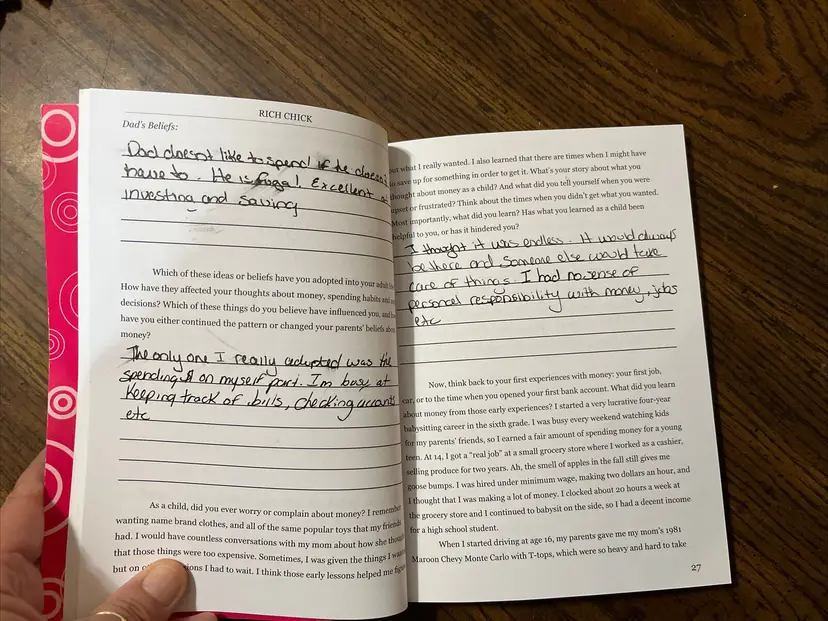 RICH CHICK
Dad's Beliefs:
Dad doesn't like to spend if he doesn't
have to. He is frugal. Excellent at
investing and saving
Which of these ideas or beliefs have you adopted into your adult
How have they affected your thoughts about money, spending habits and
decisions? Which of these things do you believe have influenced you, and
have you either continued the pattern or changed your parents' beliefs about
money?
The only one I really adopted was the
spending $ on myself part. I'm bay at
keeping track of bills, checking accounts
etc
As a child, did you ever worry or complain about money? I remember
wanting name brand clothes, and all of the same popular toys that my friends
had. I would have countless conversations with my mom about how she thought
that those things were too expensive. Sometimes, I was given the things I
but on I had to wait. I think those early lessons helped me
out what I really wanted. I also learned that there are times when I might have
to save up for something in order to get it. What's your story about what you
thought about money as a child? And what did you tell yourself when you were
upset or frustrated? Think about the times when you didn't get what you wanted.
Most importantly, what did you learn? Has what you learned as a child been
helpful to you, or has it hindered you?
I thought it was endless. It would always
be there and someone else would take
care of things. I had no sense of
personal responsibility with money, jobs
etc
Now, think back to your first experiences with money: your first job,
car, or to the time when you opened your first bank account. What did you learn
about money from those early experiences? I started a very lucrative four-year
babysitting career in the sixth grade. I was busy every weekend watching kids
for my parents' friends, so I earned a fair amount of spending money for a young
teen. At 14, I got a "real job" at a small grocery store where I worked as a cashier,
selling produce for two years. Ah, the smell of apples in the fall still gives me
goose bumps. I was hired under minimum wage, making two dollars an hour, and
I thought that I was making a lot of money. I clocked about 20 hours a week at
the grocery store and I continued to babysit on the side, so I had a decent income
for a high school student.
When I started driving at age 16, my parents gave me my mom's 1981
Maroon Chevy Monte Carlo with T-tops, which were so heavy and hard to take
27